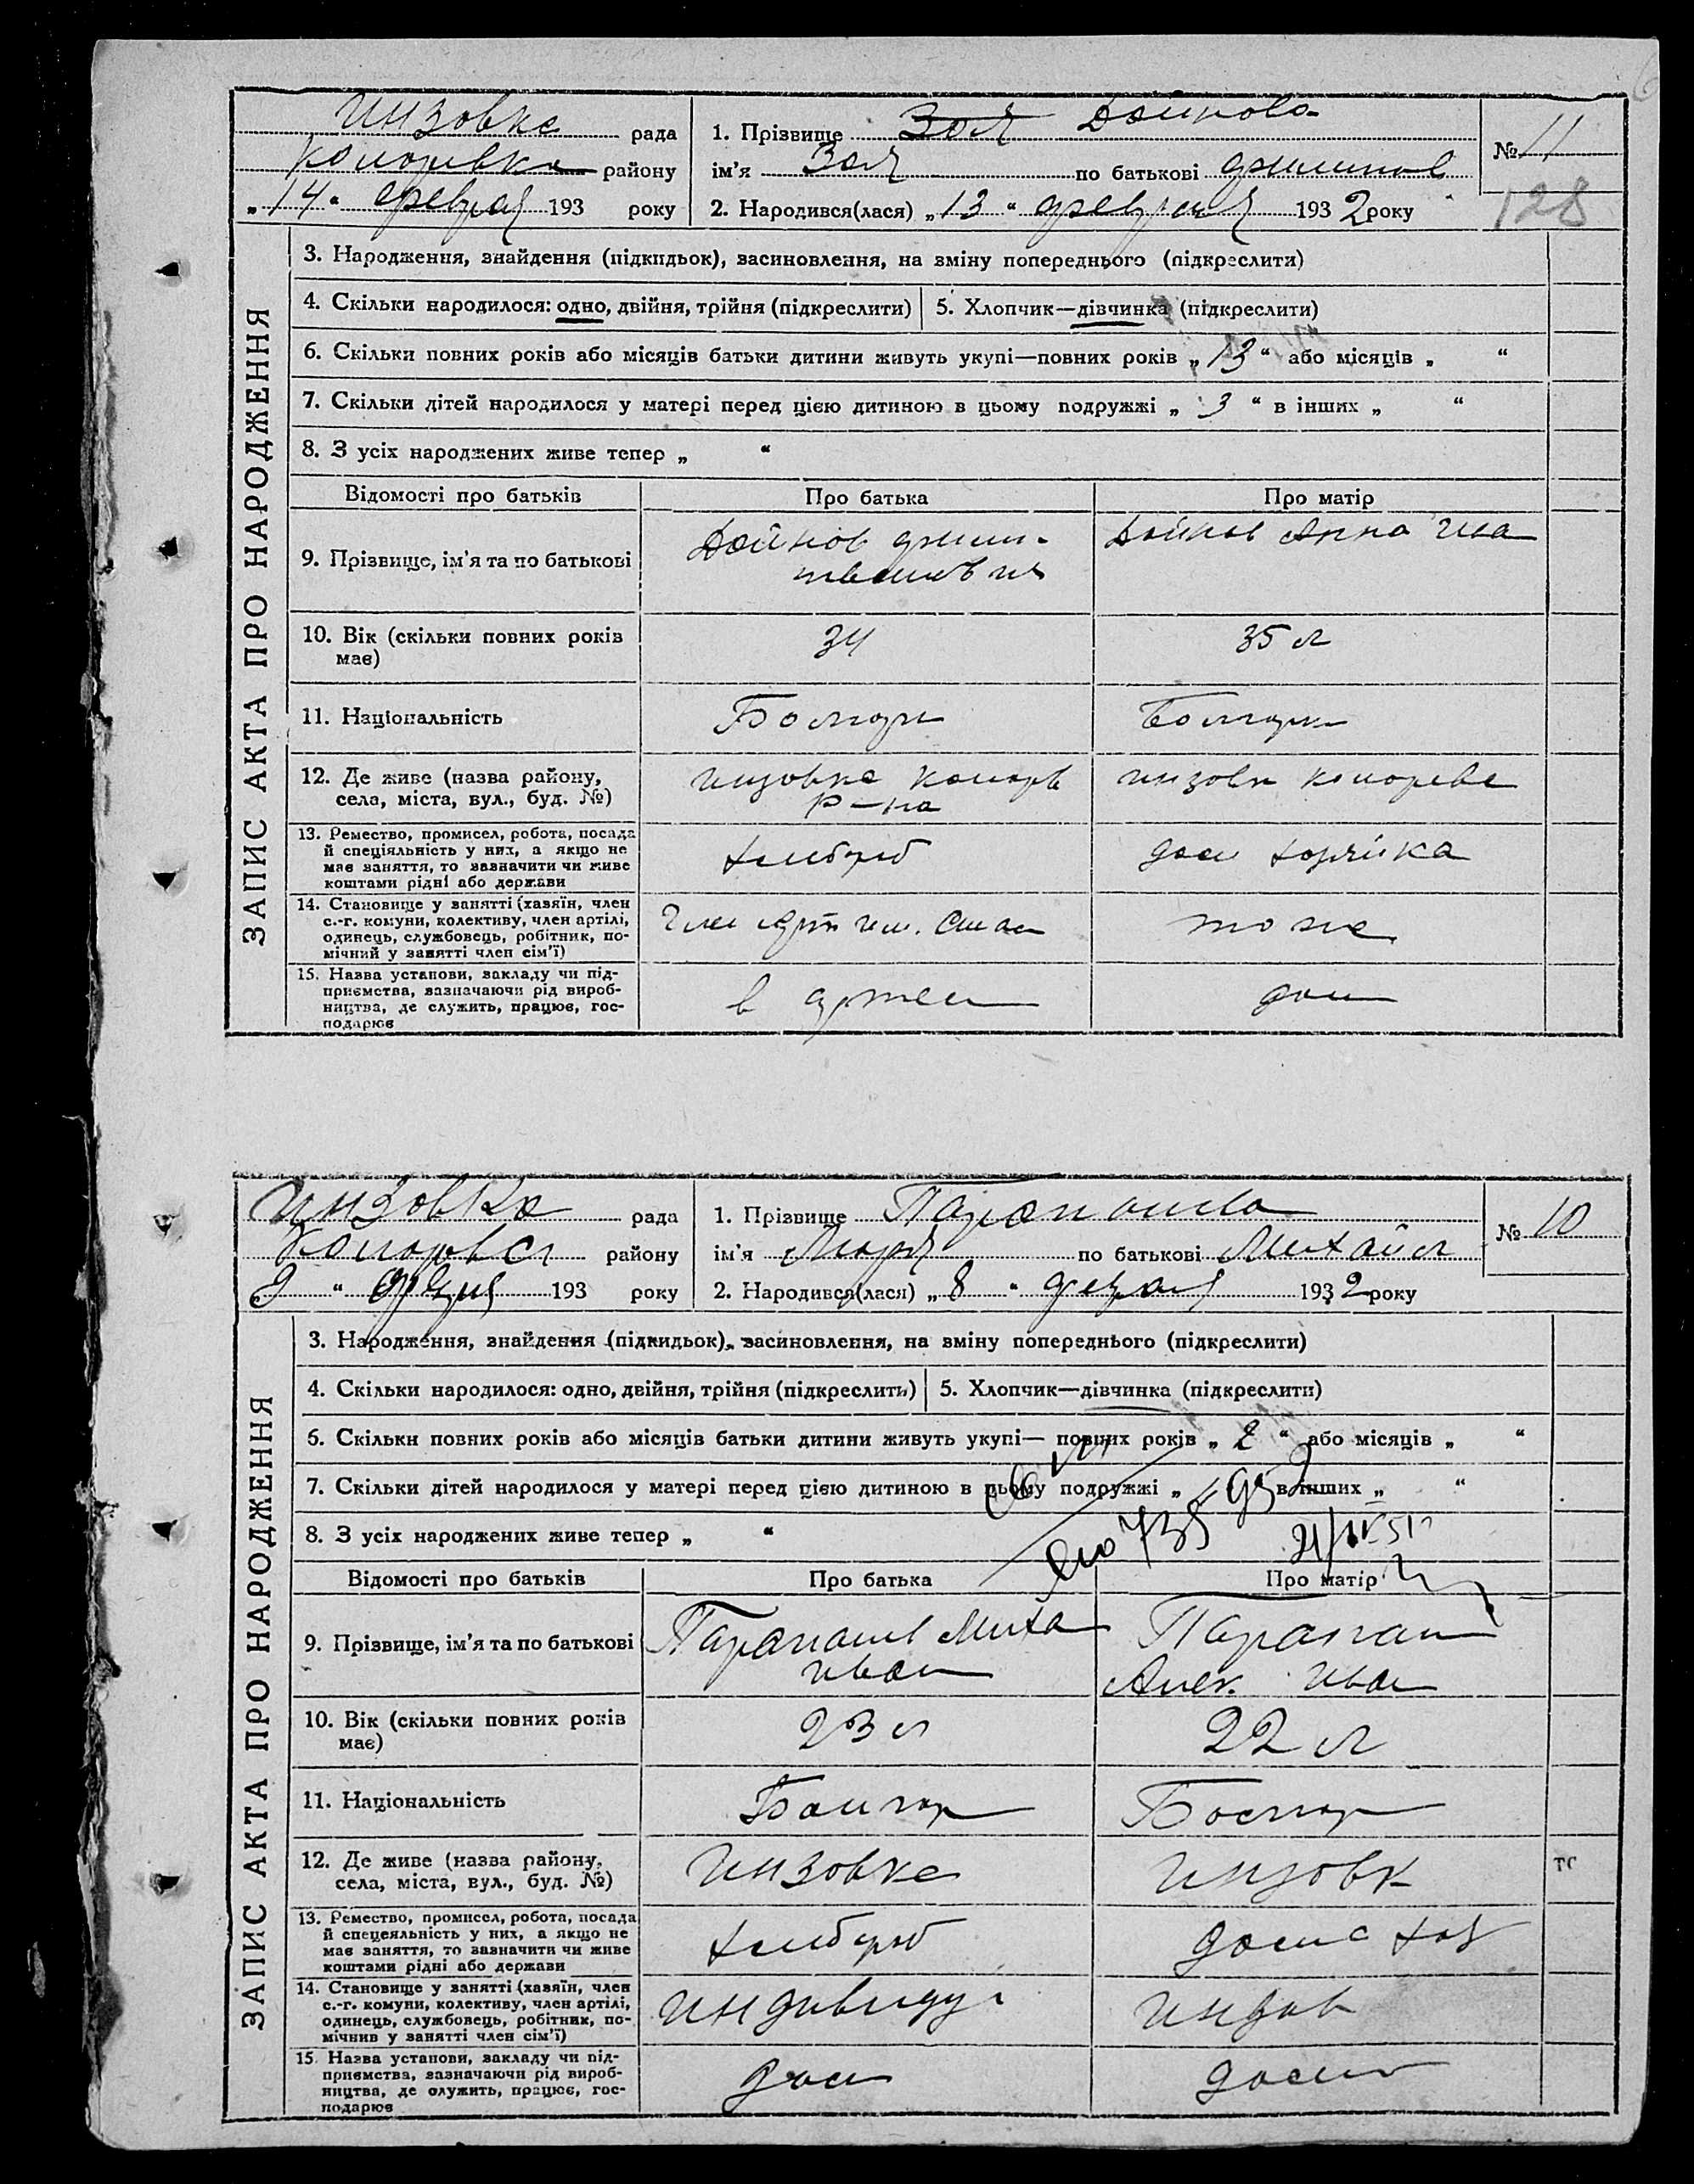 Инзовке рада
району
„ 14 “ феврал 193 року
1. Прізвище Зоя Дойнова
ім'я Зоя по батькові
2. Народився(лася) „ 13 “ 193 2 року
№ 11
128
ЗАПИС АКТА ПРО НАРОДЖЕННЯ
3. Народження, знайдення (підкидьок), засиновлення, на зміну попереднього (підкреслити)
4. Скільки народилося: одно, двійня, трійня (підкреслити)
5. Хлопчик—дівчинка (підкреслити)
6. Скільки повних років або місяців батьки дитини живуть укупі—повних років „ 13 “ або місяців „ “
7. Скільки дітей народилося у матері перед цією дитиною в цьому подружжі „ 3 “ в інших „ “
8. З усіх народжених живе тепер „ “
Відомості про батьків Про батька Про матір
9. Прізвище, ім'я та по батькові
Дойнов
Дойнов Анна Ива
10. Вік (скільки повних років має)
34
35 л
11. Національність
Болгар
Болгар
12. Де живе (назва району, села, міста, вул., буд. №)
Инзовке
р-на
инзовк
13. Ремество, промисел, робота, посада
й спеціяльність у них, а якщо не
має заняття, то зазначити чи живе
коштами рідні або держави
хлибороб
дом хозяйка
14. Становище у занятті (хазяїн, член
с.-г. комуни, колективу, член артілі,
одинець, службовець, робітник, по-
мічний у занятті член сім'ї)
Член арт им.
то же
15. Назва установи, закладу чи під-
приємства, зазначаючи рід вироб-
ництва, де служить, працює, гос-
подарює
в артел
дом
Инзовка рада
району
193 року
1. Прізвище
ім'я Мария по батькові Михайл
2. Народився(лася) „ 8 “ 193 2 року
№ 10
ЗАПИС АКТА ПРО НАРОДЖЕННЯ
3. Народження, знайдення (підкидьок), засиновлення, на зміну попереднього (підкреслити)
4. Скільки народилося: одно, двійня, трійня (підкреслити)
5. Хлопчик—дівчинка (підкреслити)
6. Скільки повних років або місяців батьки дитини живуть укупі— повних років „ 2 “ або місяців „ “
7. Скільки дітей народилося у матері перед цією дитиною в цьому подружжі „ в інших „ “
8. З усіх народжених живе тепер „ “
Відомості про батьків Про батька Про матір
9. Прізвище, ім'я та по батькові
Миха
Иван
Алек. Иван
10. Вік (скільки повних років має)
23 л
22 л
11. Національність
Болгар
Болгар
12. Де живе (назва району, села, міста, вул., буд. №)
Инзовке
Инзовк
13. Ремество, промисел, робота, посада
й спецеяльність у них, а якщо не
має заняття, то зазначити чи живе
коштами рідні або держави
хлибороб
хоз
14. Становище у занятті (хазяїн, член
с.-г. комуни, колективу, член артілі,
одинець, службовець, робітник, по-
мічнив у занятті член сім'ї)
индивиду
15. Назва установи, закладу чи під-
приємства, зазначаючи рід вироб-
ництва, де служить, працює, гос-
подарює
дом